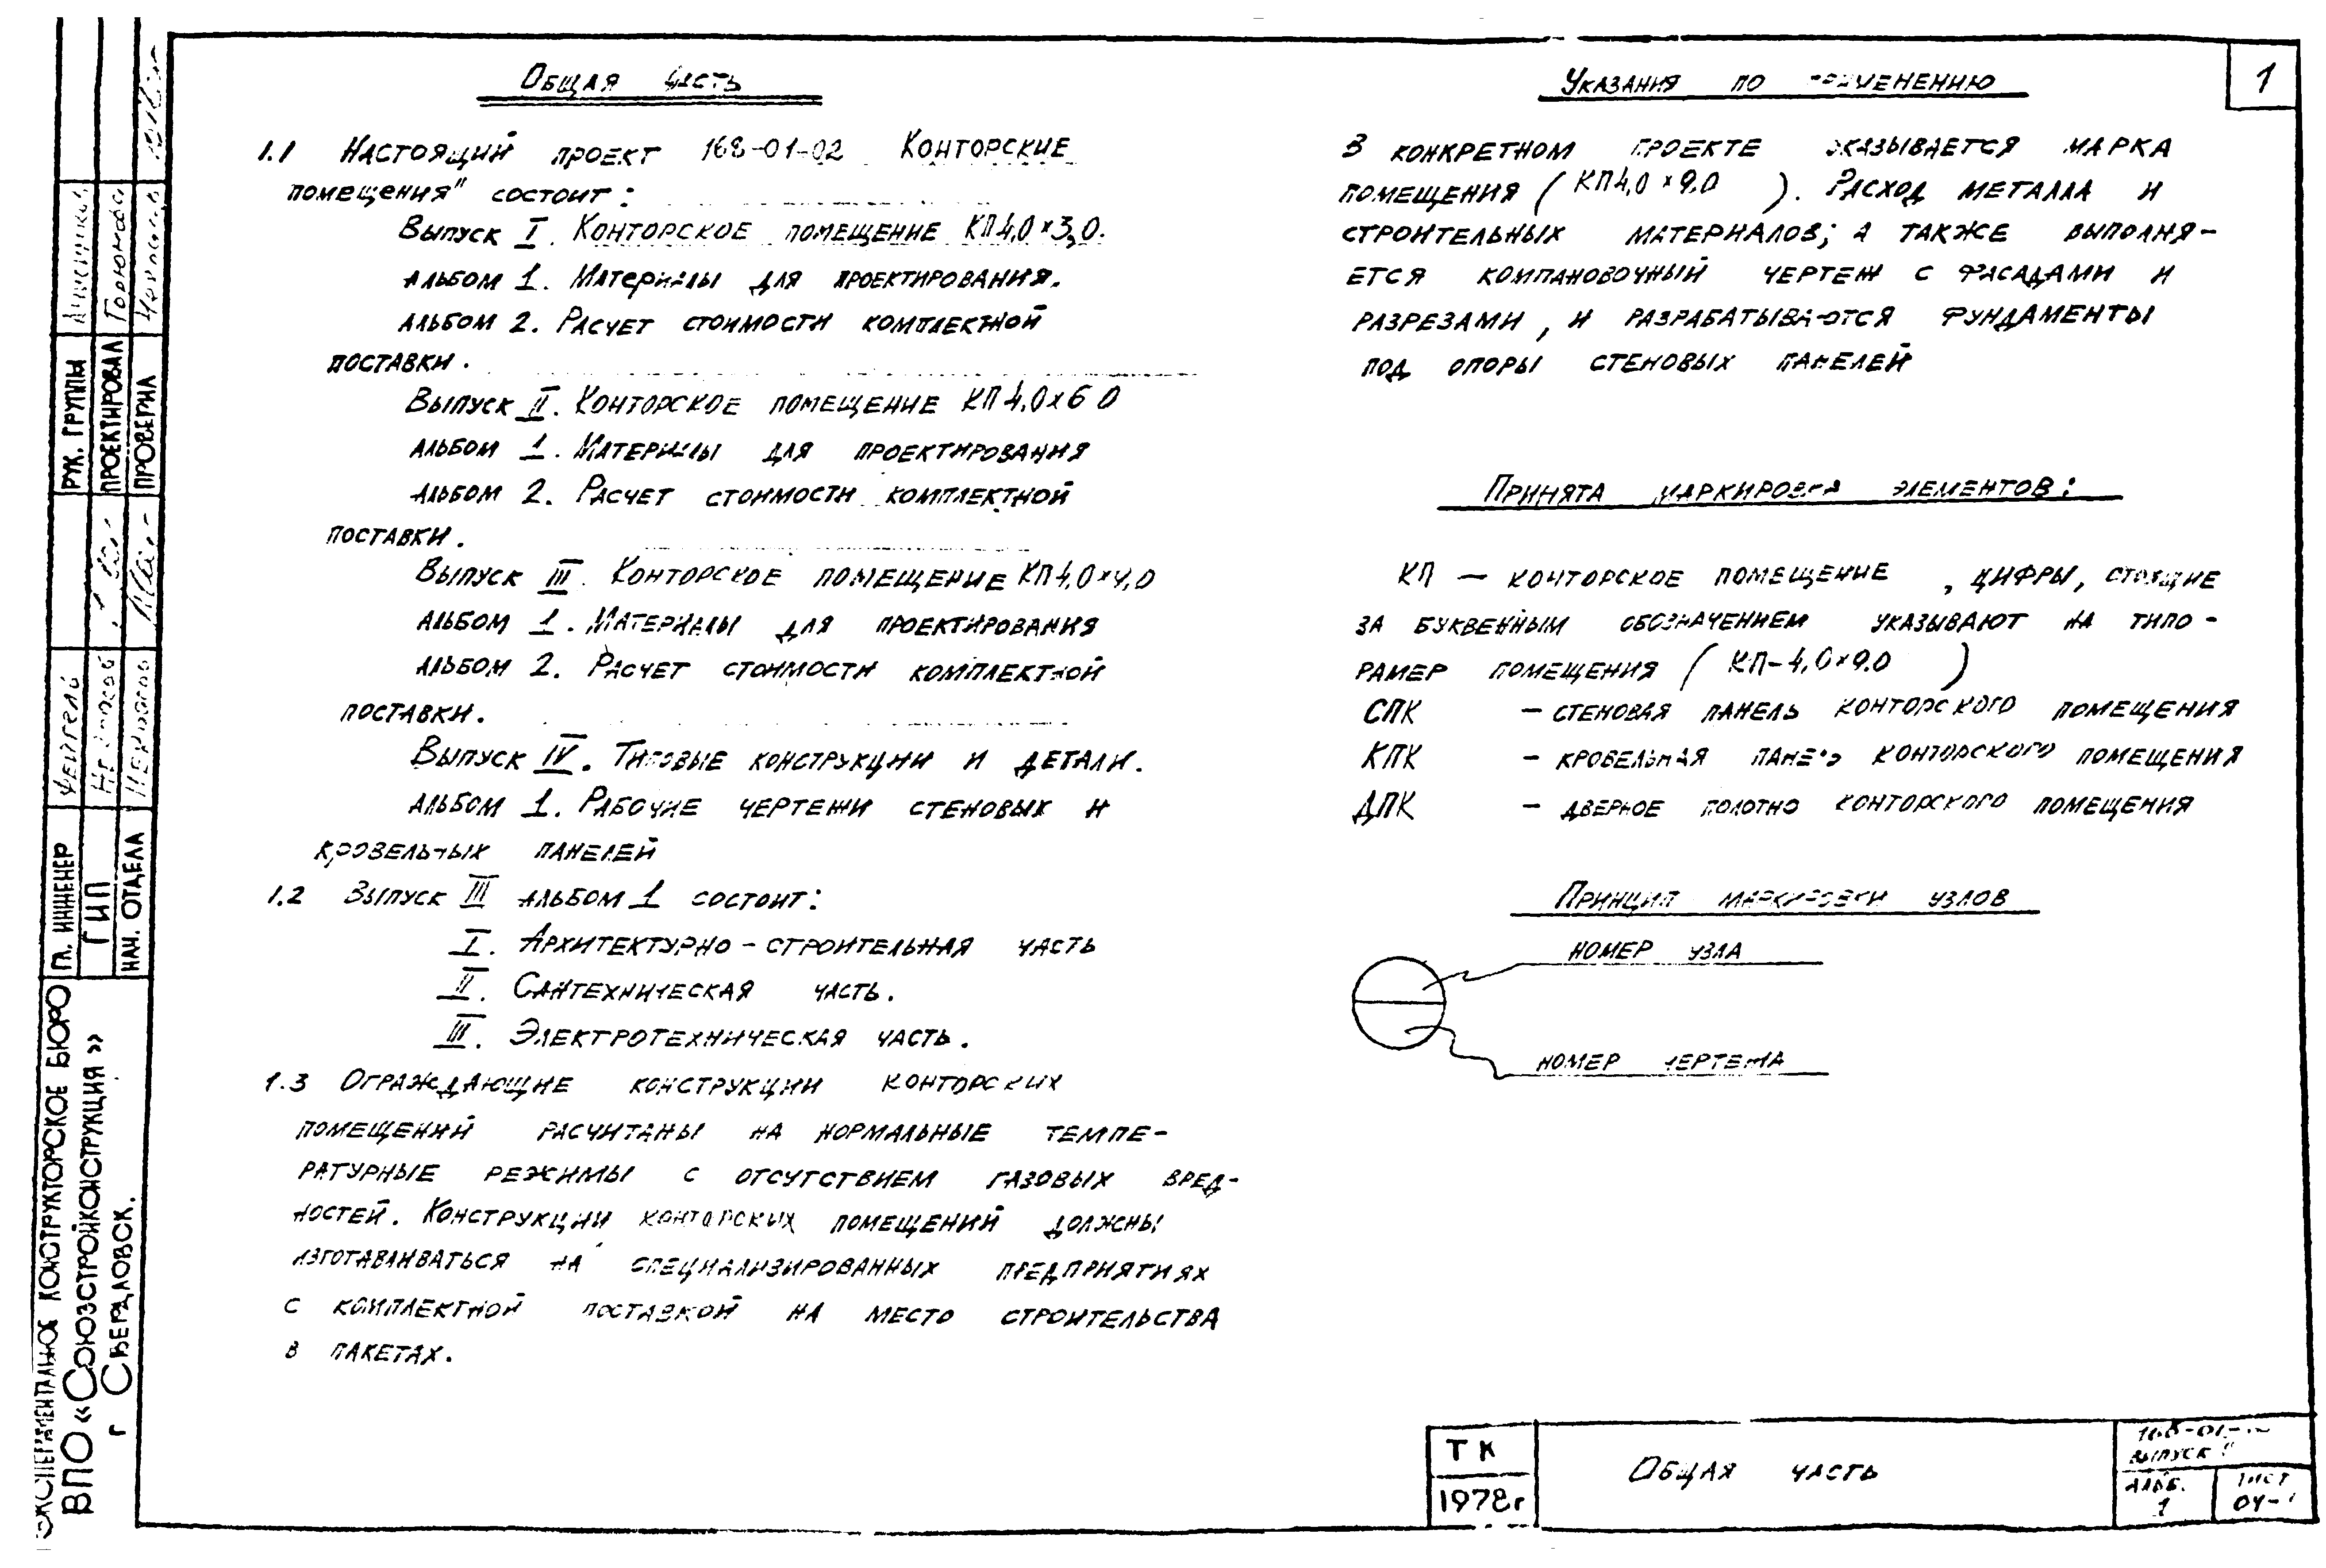 1
Общая часть
1.1 Настоящий проект 168-01-02 Конторские
помещения" состоит:
Выпуск I. Конторское помещение КП4,0×3,0.
альбом 1. Материалы для проектирования.
альбом 2. Расчет стоимости комплектной
поставки.
Выпуск II. Конторское помещение КП4,0×6 0
альбом 1. Материалы для проектирования
альбом 2. Расчет стоимости комплектной
поставки.
Выпуск III. Конторское помещение КП4,0×9,0
альбом 1. Материалы для проектирования
альбом 2. Расчет стоимости комплектной
поставки.
Выпуск IV. Типовые конструкции и детали.
альбом 1. Рабочие чертежи стеновых и
кровельных панелей
1.2 Выпуск III альбом 1 состоит:
I. Архитектурно-строительная часть
II. Сантехническая часть.
III. Электротехническая часть.
1.3 Ограждающие конструкции конторских
помещений расчитаны на нормальные темпе-
ратурные режимы с отсутствием газовых вред-
ностей. Конструкции конторских помещений должны
изготавливаться на специализированных предприятиях
с комплектной поставкой на место строительства
в пакетах.
Указания по применению
В конкретном проекте указывается марка
помещения (КП4,0×9.0). Расход металла и
строительных материалов; а также выполня-
ется компановочный чертеж с фасадами и
разрезами, и разрабатываются фундаменты
под опоры стеновых панелей
Принята маркировка элементов:
КП — конторское помещение, цифры, стоящие
за буквенным обозначением указывают на типо-
рамер помещения (КП-4,0×9.0)
СПК – стеновая панель конторского помещения
КПК – кровельная панель конторского помещения
ДПК – дверное полотно конторского помещения
Принцип маркировки узлов
номер узла
номер чертежа
ТК
1978г
Общая часть
выпуск
Альб.
1
лист
Экспериментальное конструкторское бюро
ВПО «Союзстройконструкция»
г Свердловск.
Гл. инженер
ГИП
Нач. отдела
Рук. группы
Проектировал
Проверил